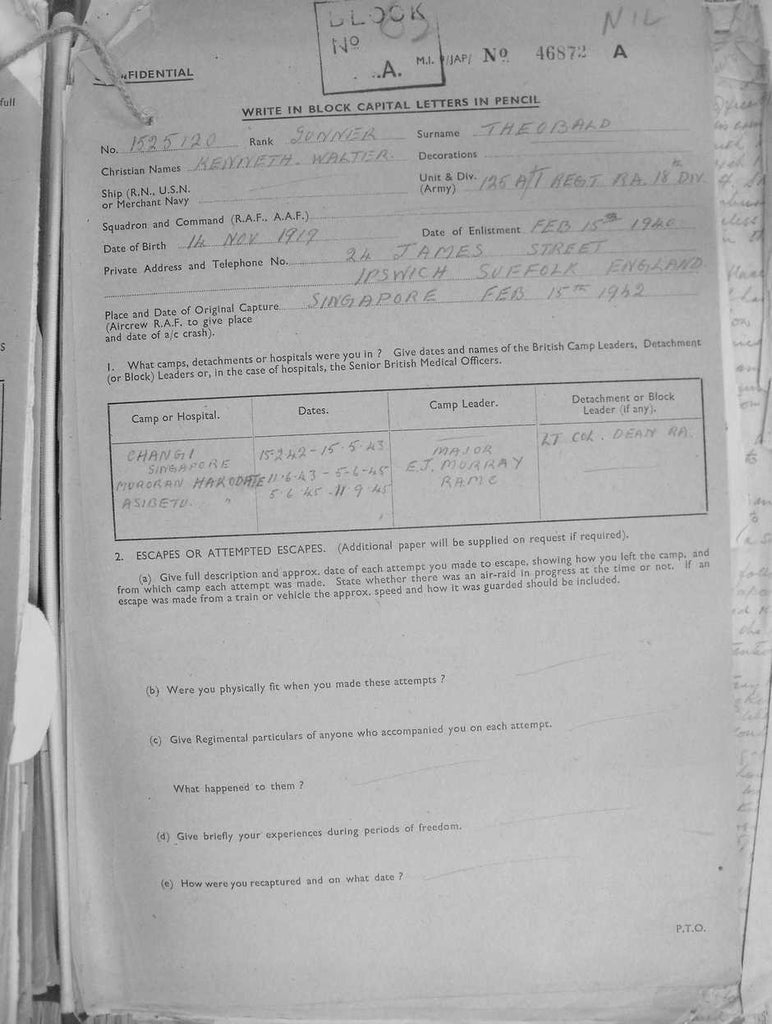 BLOCK
NIL
Nº
A.
M.I. /JAP/ Nº 46872 A
NFIDENTIAL
full
WRITE IN BLOCK CAPITAL LETTERS IN PENCIL
No. 1525120 Rank GUNNER Surname THEOBALD
Christian Names KENNETH. WALTER. Decorations
Ship (R.N., U.S.N.
or Merchant Navy
Unit & Div. 125 A/T REGT RA. 18th DIV.
(Army)
Squadron and Command (R.A.F., A.A.F.)
Date of Birth 14 NOV 1919 Date of Enlistment FEB 15TH 1940
Private Address and Telephone No. 24 JAMES STREET
IPSWICH SUFFOLK ENGLAND
Place and Date of Original Capture SINGAPORE FEB 15TH 1942
(Aircrew R.A.F. to give place
and date of a/c crash).
1. What camps, detachments or hospitals were you in ? Give dates and names of the British Camp Leaders, Detachment
(or Block) Leaders or, in the case of hospitals, the Senior British Medical Officers.
Camp or Hospital. Dates. Camp Leader. Detachment or Block
Leader (if any).
CHANGI 15-2-42-15-5-43 MAJOR LT COL. DEAN RA.
SINGAPORE E.J. MURRAY
MURORAN HAKODATE 11-6-43-5-6-45 RAMC
ASIBETU. " 5-6-45-11-9-45
2. ESCAPES OR ATTEMPTED ESCAPES. (Additional paper will be supplied on request if required).
(a) Give full description and approx. date of each attempt you made to escape, showing how you left the camp, and
from which camp each attempt was made. State whether there was an air-raid in progress at the time or not. If an
escape was made from a train or vehicle the approx. speed and how it was guarded should be included.
(b) Were you physically fit when you made these attempts ?
(c) Give Regimental particulars of anyone who accompanied you on each attempt.
What happened to them ?
(d) Give briefly your experiences during periods of freedom.
(e) How were you recaptured and on what date ?
P.T.O.